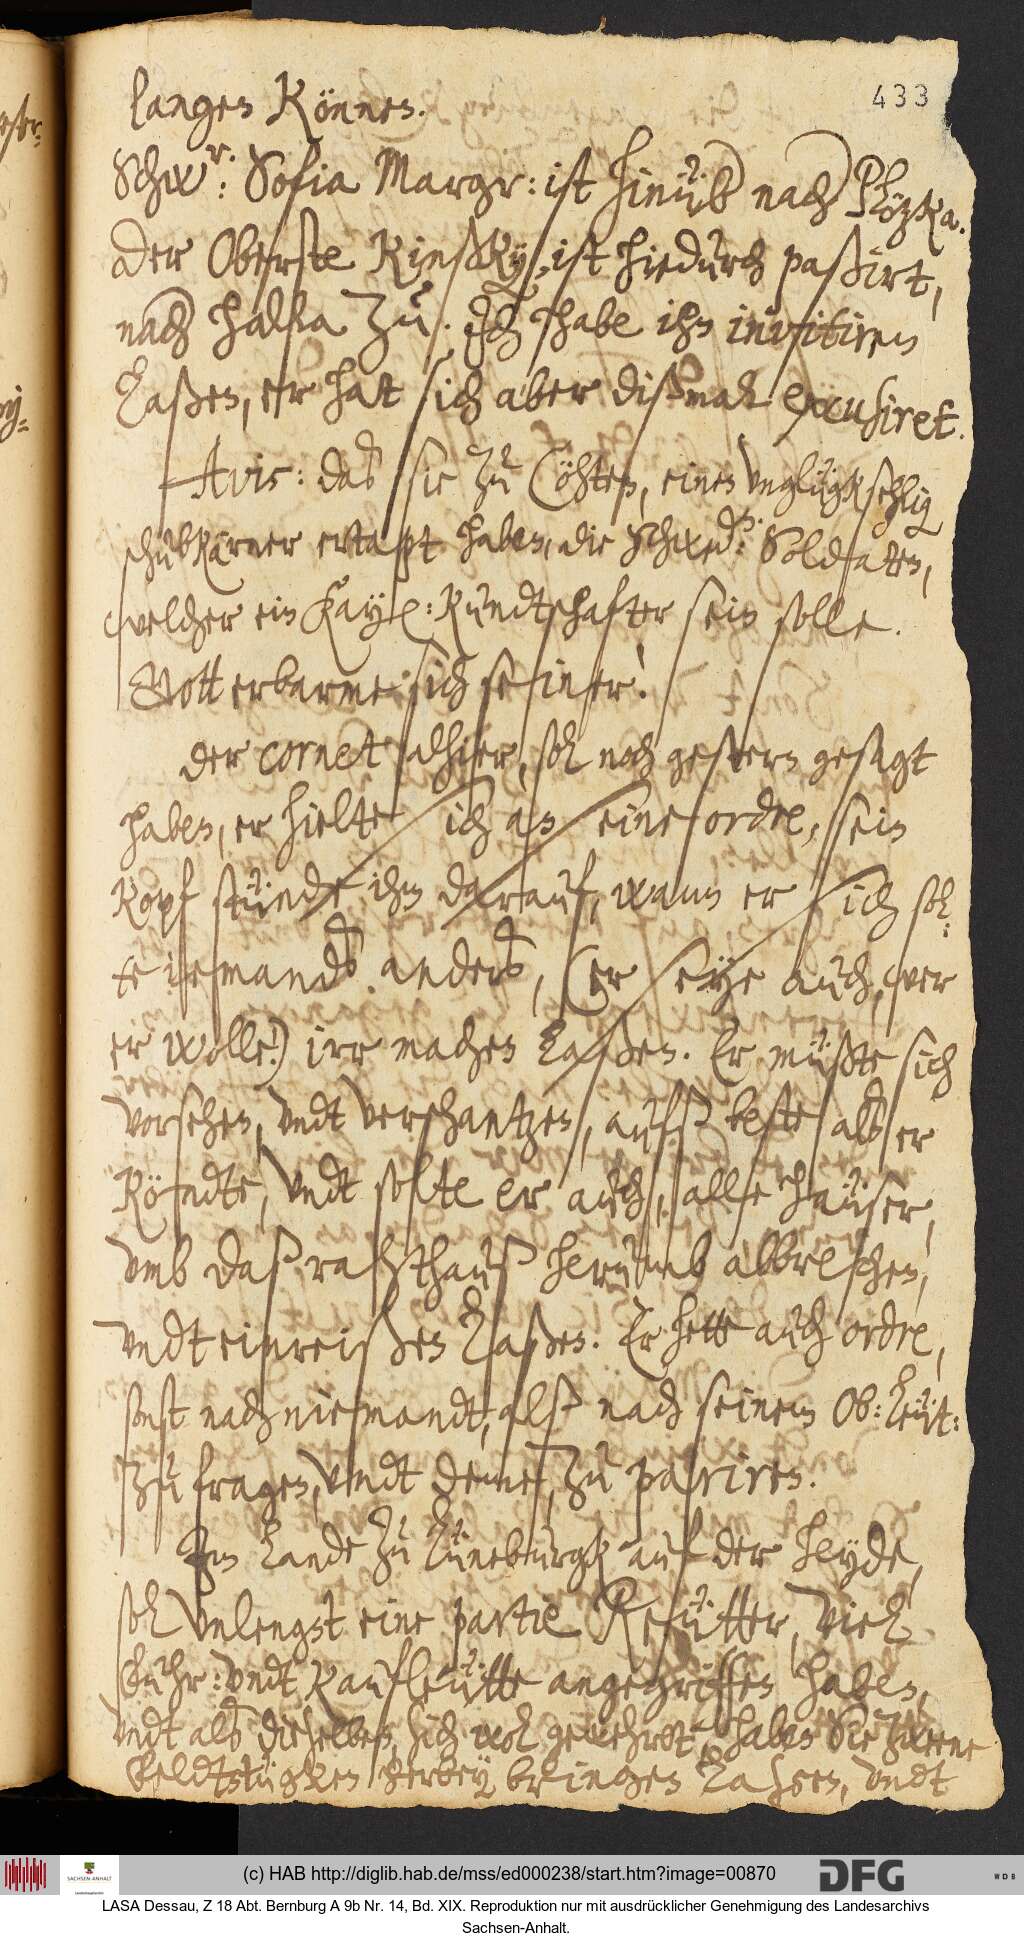 433
langen können.
Schwr: Sofia Margr: ist hinüb nach Plözka.
der Oberste Kinßky, ist hiedurch paßirt,
nach Halla zu. Ich habe ihn invitiren
laßen, er hat sich aber dißmal excusiret.
Avis: das sie zu Cöhten, einen vnglügkselig
schubkärner ertapt haben, die Schwed: Soldaten,
welcher ein Kayl: Kundtschafter sein solle.
Gott erbarme sich seiner!
der cornet alhier, sol noch gestern gesagt
haben, er hielte sich an seine ordre, sein
Kopf stünde ihm darauf, wann er sich sol¬
te iemands anders, (er seye auch, wer
er wolle!) irr machen laßen. Er müßte sich
vorsehen, vndt verschantzen, aufß beste als er
köndte, vndt solte er auch, alle häuser,
vmb daß rahthauß herumb abbrechen,
vndt einreißen laßen. Er hette auch ordre,
sonst nach niemandt, alß nach seinem Ob: Leüt:
zu fragen, vndt deme, zu pariren.
Im Lande zu Lüneburgk auf der Heyde,
sol vnlengst eine partie Reütter, viel
Fuhr: vndt Kaufleütte angegriffen haben,
vndt als dieselben, sich wol gewehret, haben Sie zweene
Feldtstügken herbey bringen laßen, vndt
(c) HAB http://diglib.hab.de/mss/ed000238/start.htm?image=00870
SACHSEN-ANHALT
DFG
WDB
LASA Dessau, Z 18 Abt. Bernburg A 9b Nr. 14, Bd. XIX. Reproduktion nur mit ausdrücklicher Genehmigung des Landesarchivs
Sachsen-Anhalt.